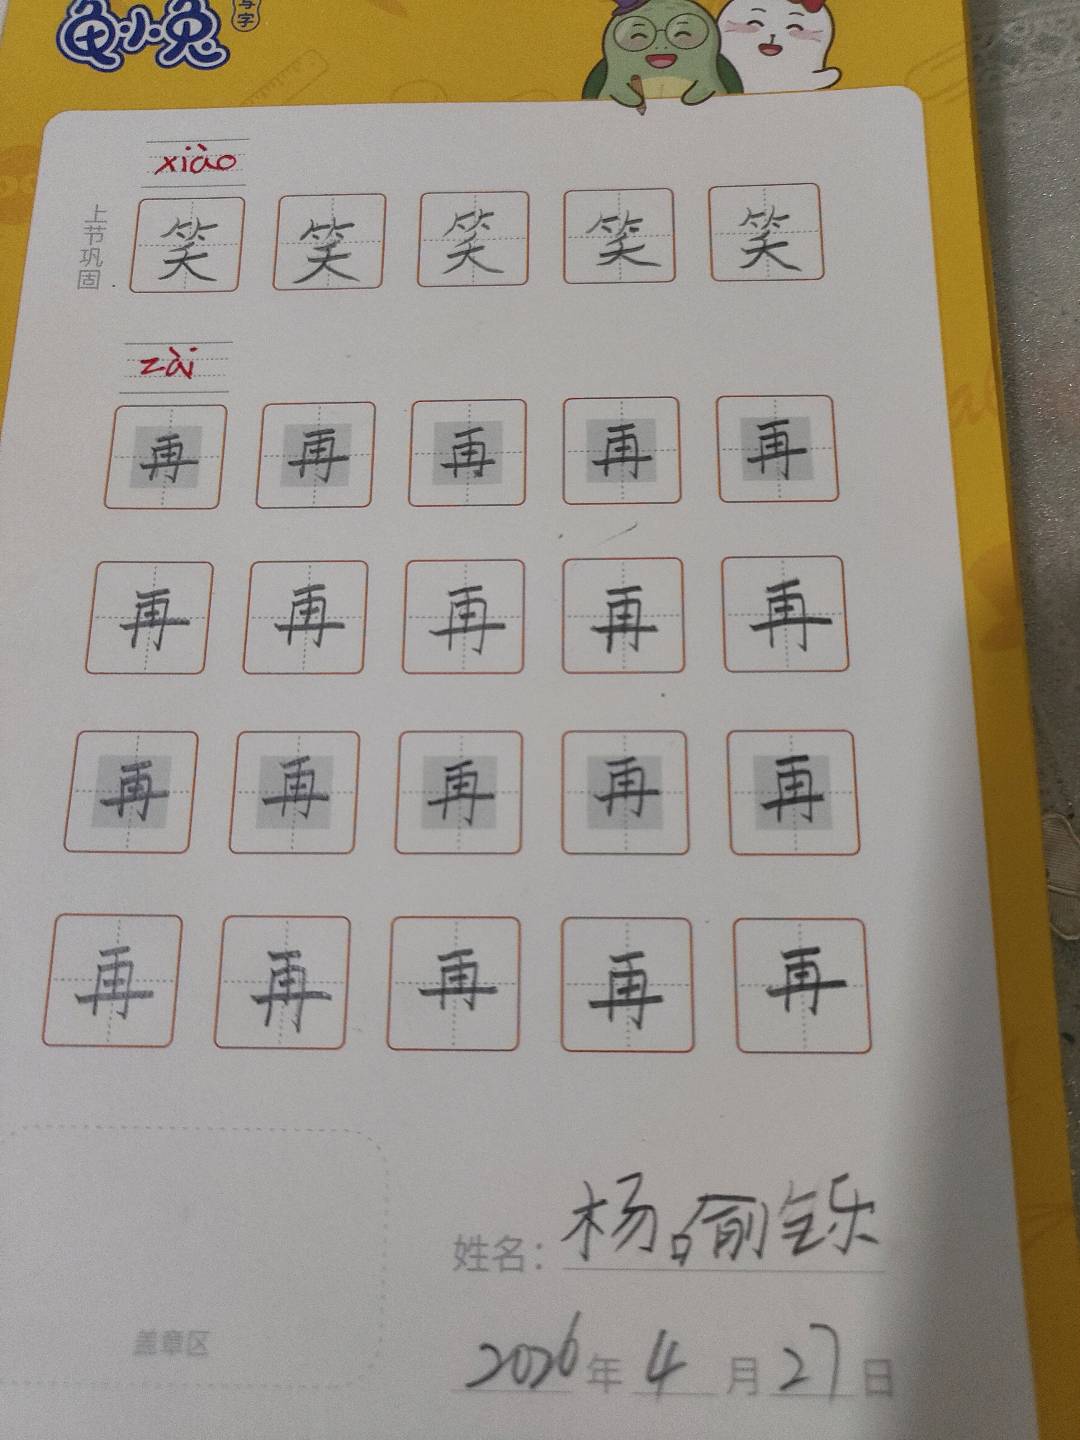 龟小兔写字
xiào
上节巩固
笑 笑 笑 笑 笑
zài
再 再 再 再 再
再 再 再 再 再
再 再 再 再 再
再 再 再 再 再
姓名：杨喻铄
2026年4月27日
盖章区